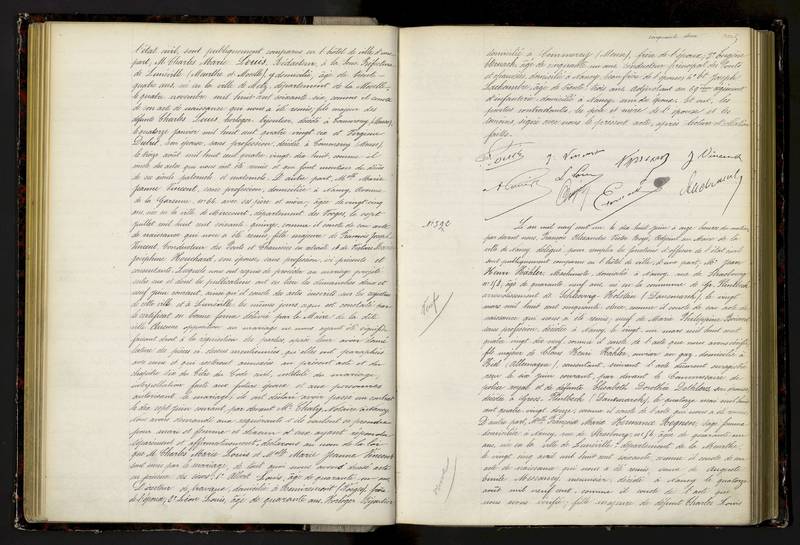 l'état civil, sont publiquement comparus en l'hôtel de ville d'une
part, M. Charles Marie Louis, Rédacteur à la Sous Préfecture
de Lunéville (Meurthe et Moselle) y domicilié, âgé de trente
quatre ans, né en la ville de Metz, département de la Moselle,
le quatre novembre mil huit cent soixante six, comme il conste
de son acte de naissance que nous a été remis, fils majeur des
défunts Charles Louis, horloger bijoutier, décédé à Commercy (Meuse)
le quatorze janvier mil huit cent quatre vingt six et Virginie
son épouse, sans profession, décédée à Commercy (Meuse)
le trois août mil huit cent quatre vingt dix huit, comme il
conste des actes que nous ont été remis et qui font mention du décès
de ses aïeuls paternels et maternels. D'autre part, Mlle Marie
Jeanne Vincent, sans profession, domiciliée à Nancy, Avenue
de la Garenne, no 64, avec ses père et mère, âgée de vingt cinq
ans, née en la ville de Mirecourt, département des Vosges, le sept
juillet mil huit cent soixante quinze, comme il conste de son acte
de naissance que nous a été remis, fille majeure de François Joseph
Vincent, Conducteur des Ponts et Chaussées en retraite et de
Joséphine Houchard, son épouse, sans profession, ici présents et
consentants. Lesquels nous ont requis de procéder au mariage projeté
entre eux et dont les publications ont eu lieu les dimanches deux et
neuf juin courant, ainsi qu'il conste des actes inscrits sur les registres
de cette ville et à Lunéville les mêmes jours ainsi qu'il est constaté par
le certificat en bonne forme délivré par le Maire de la dite
ville. Aucune opposition au mariage ne nous ayant été signifiée
faisant droit à la réquisition des parties, après leur avoir donné
lecture des pièces ci dessus mentionnées qui ont été paraphées
par nous et qui resteront annexées au présent acte et du
chapitre six du titre du Code civil, intitulé du mariage,
interpellation faite aux futurs époux et aux personnes
autorisant le mariage, ils ont déclaré avoir passé un contrat
le dix sept juin courant par devant Me Notaire à Nancy
nous avons demandé aux requérants s'ils veulent se prendre
pour mari et femme et chacun d'eux ayant répondu
séparément et affirmativement, déclarons au nom de la loi
que M. Charles Marie Louis et Mlle Marie Jeanne Vincent
sont unis par le mariage, de tout quoi nous avons dressé acte
en présence des sieurs 1° Albert Louis, âgé de quarante un ans,
Directeur de travaux, domicilié à Remiremont (Vosges) frère
de l'époux, 2° Léon Louis, âgé de quarante ans, Horloger Bijoutier
cinquante deux
domicilié à Commercy (Meuse), frère de l'époux, 3° Eugène
âgé de cinquante un ans, Conducteur principal des Ponts
et chaussées, domicilié à Nancy, beau frère de l'épouse, 4° et Joseph
Lachambre, âgé de trente trois ans, adjudant au 69me régiment
d'infanterie, domicilié à Nancy, ami de l'époux, lesquels, ainsi
que les parties contractantes, les père et mère de l'épouse et les
témoins, signé avec nous le présent acte, après lecture et
faite.
Louis J. Vincent Vincent J. Vincent
A. Louis L. Louis Lachambre
No 392
L'an mil neuf cent un le dix huit juin à onze heures du matin
par devant nous, François Alexandre Victor Adjoint au Maire de la
ville de Nancy délégué pour remplir les fonctions d'officier de l'État civil
sont publiquement comparus en l'hôtel de ville, d'une part, Mr. Jean
Henri Kähler, Machiniste, domicilié à Nancy, rue de Strasbourg
no 154, âgé de quarante neuf ans, né en la commune de Gr. Flintbeck
arrondissement de Schleswig-Holstein (Danemarck), le vingt
mars mil huit cent cinquante deux, comme il conste de son acte de
naissance que nous a été remis, veuf de Marie Philippine
sans profession, décédée à Nancy, le vingt un mars mil huit cent
quatre vingt dix neuf, comme il conste de l'acte que nous avons vérifié,
fils majeur de Claus Henri Kähler, ouvrier au gaz, domicilié à
Kiel (Allemagne), consentant suivant l'acte dûment enregistré
reçu le six juin courant, par devant le Commissaire de
police royal, et de défunte Elisabeth Dorothée son épouse,
décédée à Gross-Flintbeck (Danemarck), le quatorze mai mil huit
cent quatre vingt douze, comme il conste de l'acte que nous a été remis.
D'autre part, Mme François Marie Hermance Regnier, sage femme,
domiciliée à Nancy, rue de Strasbourg no 154, âgée de quarante un
ans, née en la ville de Lunéville, département de la Meurthe,
le vingt cinq avril mil huit cent soixante, comme il conste de son
acte de naissance qui nous a été remis, veuve de Auguste
Emile menuisier, décédé à Nancy le quatorze
août mil neuf cent, comme il conste de l'acte que
nous avons vérifié, fille majeure de défunt Charles Louis